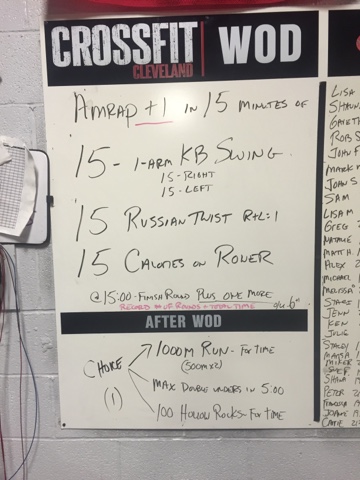 CROSSFIT
CLEVELAND
WOD
AMRAP +1 IN 15 MINUTES OF
15 - 1-ARM KB SWING
15 - RIGHT
15 - LEFT
15 RUSSIAN TWIST R+L:1
15 CALORIES ON ROWER
@ 15:00 - FINISH ROUND PLUS ONE MORE
RECORD # OF ROUNDS + TOTAL TIME
AFTER WOD
CHOOSE
(1)
1000M RUN - FOR TIME
(500M X2)
MAX DOUBLE UNDERS IN 5:00
100 HOLLOW ROCKS - FOR TIME
LISA
SHAUN
GARETH
ROB S
JOHN F
MARK
JOHN S
SAM
LISA M
GREG
NATALIE
MATT H
ALEX
MICHAEL
MELISSA
JENN
KEN
JULIE
PETER